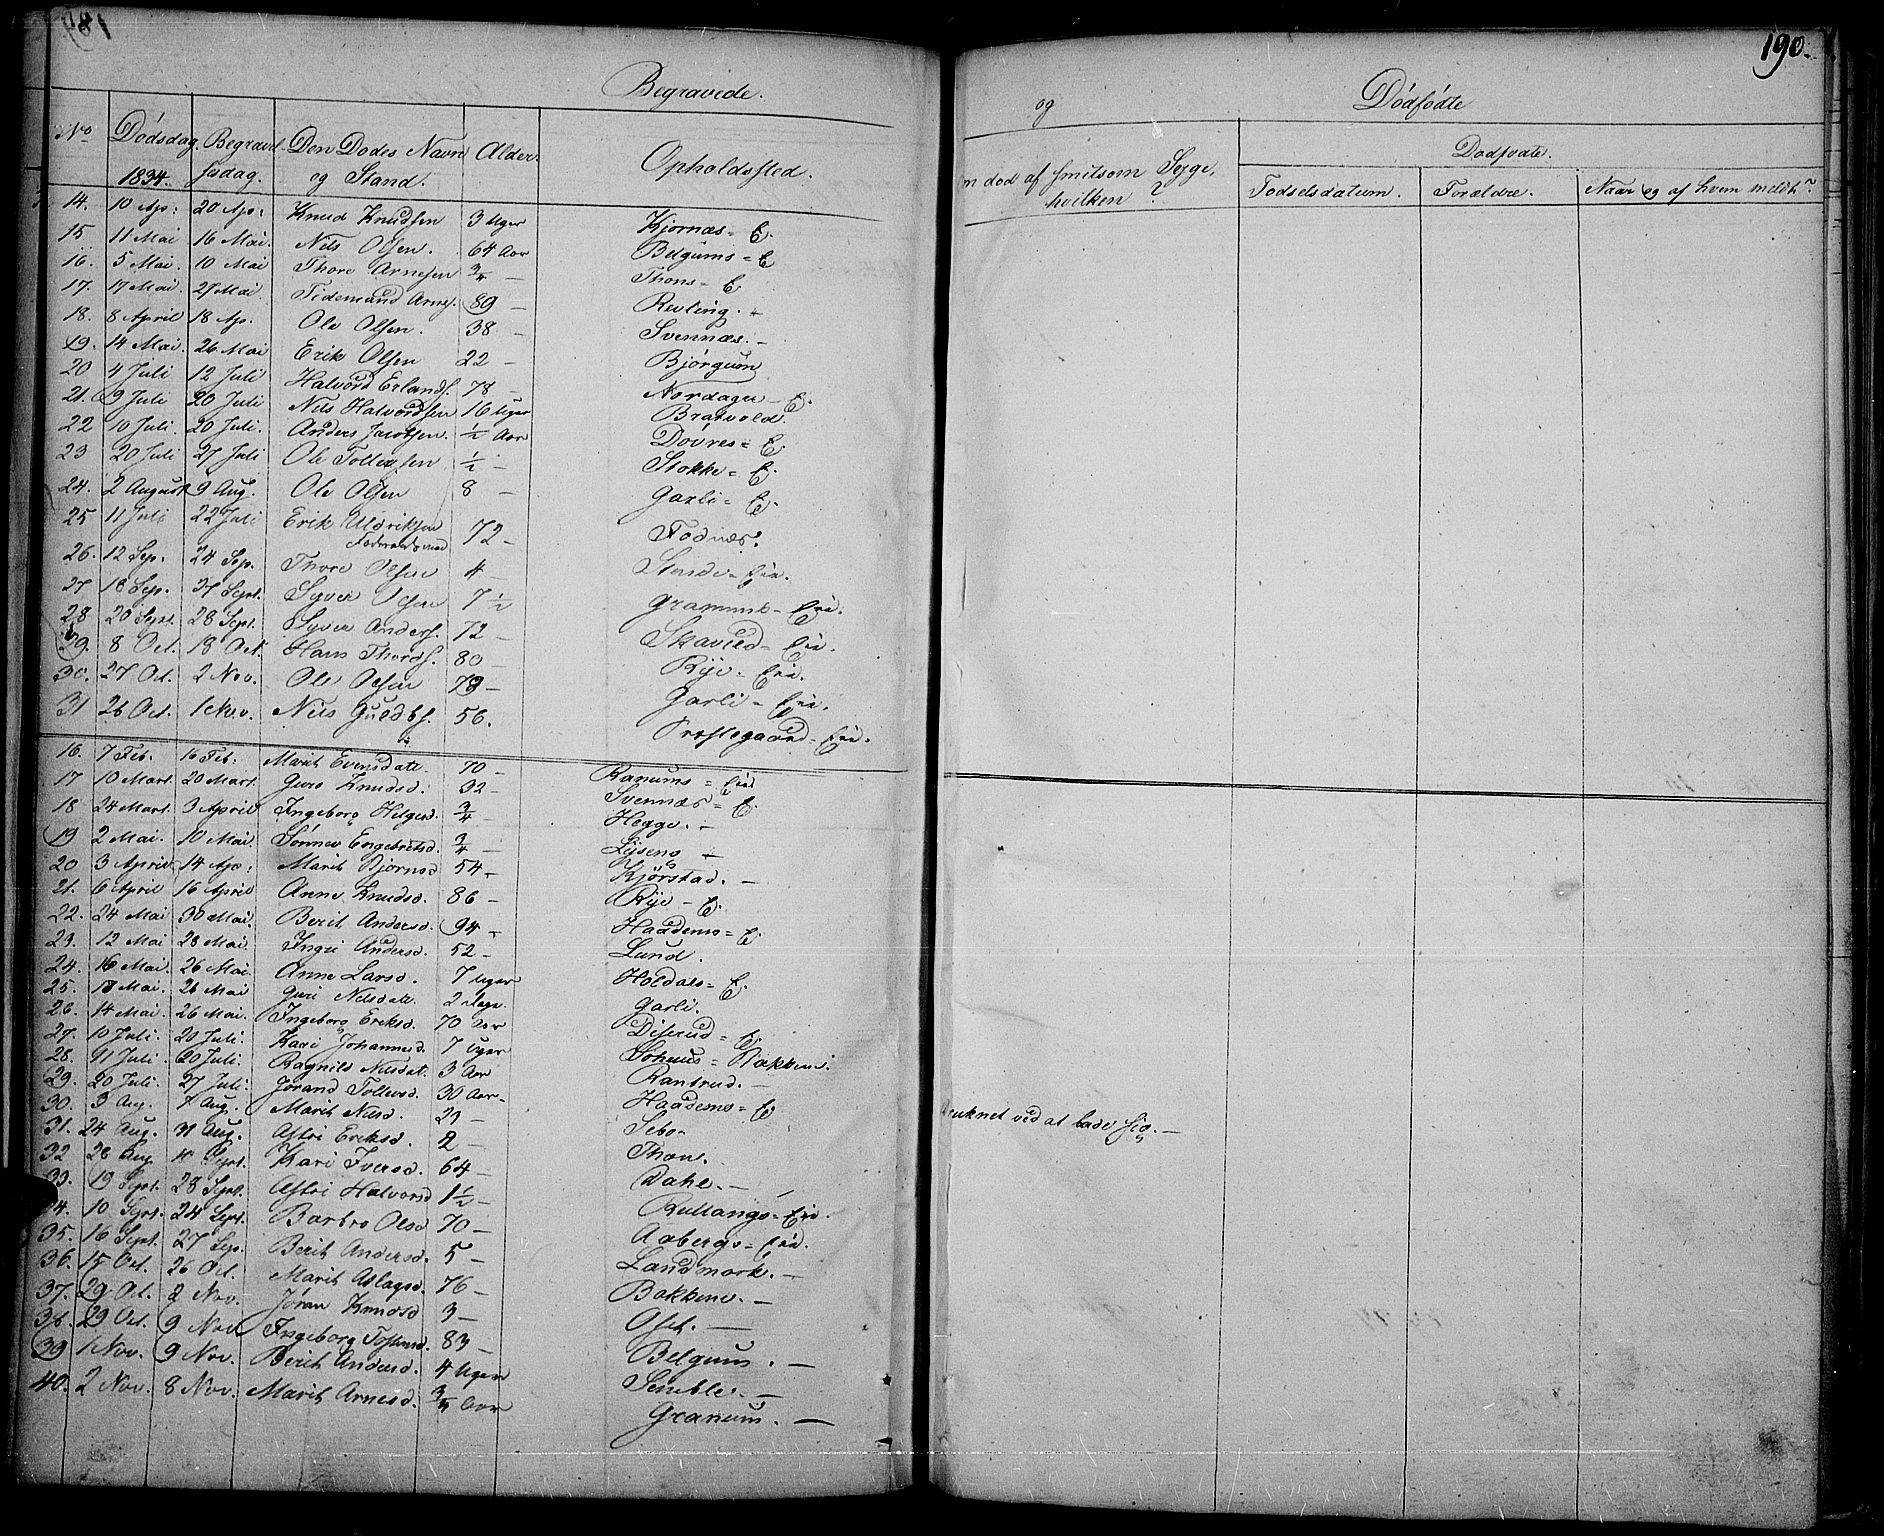 190.
Begravede.
og
Dödfödte
No
Dødsdag. 1834.
Begravelsesdag.
Den Dødes Navn og Stand.
Alder.
Opholdssted.
død af smitsom Syge, hvilken?
Dødfødte.
Fødselsdatum.
Forældre.
Naar og af hvem meldt?
14. 10 Ap: 20 Ap: Knud Knudsen 3 Uger Kjørnæs = E.
15 11 Mai 16 Mai. Nils Olsen. 64 Aar Belgums = E
16. 5 Mai. 10 Mai Thore Arnesen 3/4 — Thons = E
17. 17 Mai. 27 Mai. Tidemand Arnes. 89 — Revling. —
18. 8 April 18 Ap. Ole Olsen. 38 — Svennæs. —
19. 14 Mai. 26 Mai Erik Olsen 22 — Bjørgum
20 4 Juli 12 Juli Halvord Erlands. 78 — Nordagu — E.
21. 9 Juli 20 Juli Nils Halvordsen 16 Uger Bratvold.
22 10 Juli. 20 Juli. Anders Jacobsen. 1/2 Aar Dovres = E.
23 20 Juli 27 Juli Ole Tollefsen 1/2 — Stokke = E.
24. 2 August 9 Aug. Ole Olsen 8 — Garli = E.
25 11 Juli 22 Juli Erik Uldriksen 72 — Fodnæs.
Føderaadsmand
26. 12 Sep. 24 Sep. Thore Olsen 4 — Stende = Eie.
27 18 Sep. 27 Sept. Syver Olsen 7 1/2 Granums = Eie.
28 20 Sept. 28 Sept. Syver Anders. 72 — Skavild = Eie.
29. 8 Oct. 18 Oct. Hans Thords. 80 — Rye = Eie.
30. 27 Oct. 2 Nov. Ole Olsen 79 — Garli = Eie.
31 26 Oct. 1 Nov. Nils Guldbs. 56. Prestegaard = Eie.
16. 7 Feb. 16 Feb. Marit Evensdatt. 70 — Ranums = Eie
17 10 Mart. 20 Mart. Guro Knudsd. 32 — Svennæs = E.
18 24 Mart. 3 April Ingeborg Helgesd. 3/4 — Hegge. —
19 2 Mai. 10 Mai. Sønnev Engebretsd. 3/4 — Leisens —
20 3 April 14 Ap: Marit Bjørnsd 54 — Kjörstad. —
21. 6 April 16 April Anne Knudsd. 86 — Rye — E.
22. 24 Mai 30 Mai. Berit Andersd. 94 — Haadems = E
23. 12 Mai 28 Mai. Ingri Andersd. 52 — Lund.
24. 16 Mai. 26 Mai. Anne Larsd. 7 Uger Holdals = E.
25. 18 Mai. 26 Mai Guri Nilsdatt. 2 Dage. Garli.
26. 14 Mai. 26 Mai. Ingeborg Eriksd. 70 Aar Diserud = E.
27. 10 Juli. 20 Juli. Kari Johannesd. 7 Uger = Bakkene.
28. 11 Juli. 20 Juli. Ragnild Nilsdat. 3 Aar Ranrud. —
29. 20 Juli. 27 Juli. Jørand Tollevsd. 30 Aar — Haadems = E
30. 3 Aug. 7 Aug. Marit Nilsd. 21 — Sebo — druknet ved at bade sig. —
31. 24 Aug. 31 Aug. Astri Eriksd. 2 — Thon.
32 28 Aug Sept. Kari Iversd. 64 — Dahl. —
33. 19 Sept. 28 Sept. Astri Halvorsd 1 1/2 — Rullangs = Eie.
34. 10 Sept. 24 Sept. Barbro Olsd 70 — Aabergs = Eie.
35. 16 Sept. 27 Sep. Berit Andersd. 5 — Landmark. —
36. 15 Oct. 26 Oct. Marit Aslagsd. 76 — Bakkene. —
37. 29 Oct. 2 Nov. Jöran Knudsd 3 — Oset. —
38. 29 Oct. 9 Nov Ingeborg Tostensd. 83 — Belgum. —
39 1 Nov. 9 Nov. Berit Andersd. 4 Uger Semble. —
40. 2 Nov. 8 Nov. Marit Arnesd. 3/4 Aar Granum. —